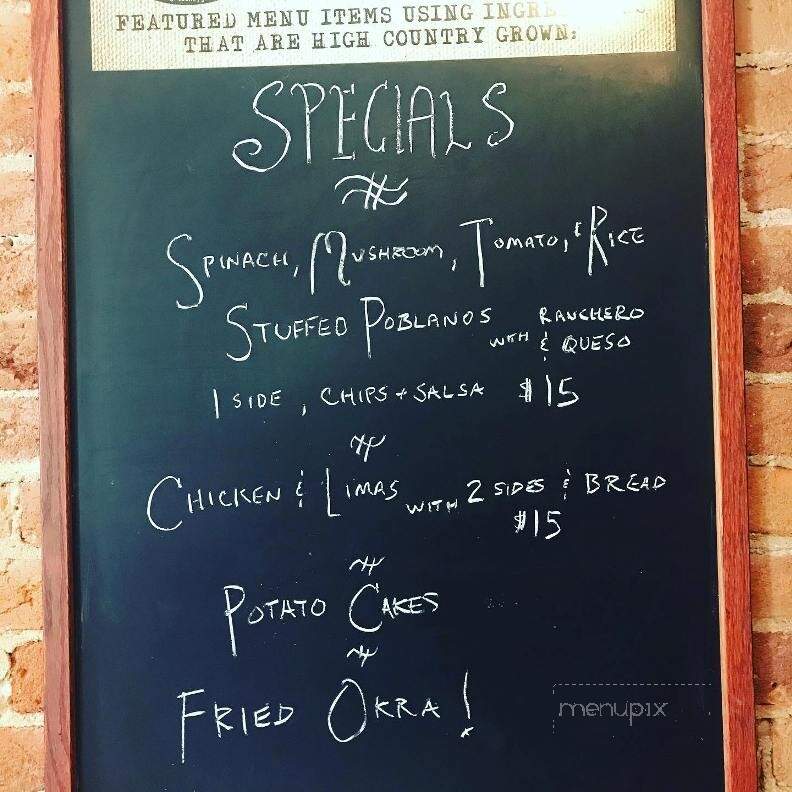 FEATURED MENU ITEMS USING
THAT ARE HIGH COUNTRY GROWN:
SPECIALS
SPINACH, MUSHROOM, TOMATO, & RICE
STUFFED POBLANOS WITH RANCHERO & QUESO
1 SIDE, CHIPS + SALSA $15
CHICKEN & LIMAS WITH 2 SIDES & BREAD
$15
POTATO CAKES
FRIED OKRA!
menupix